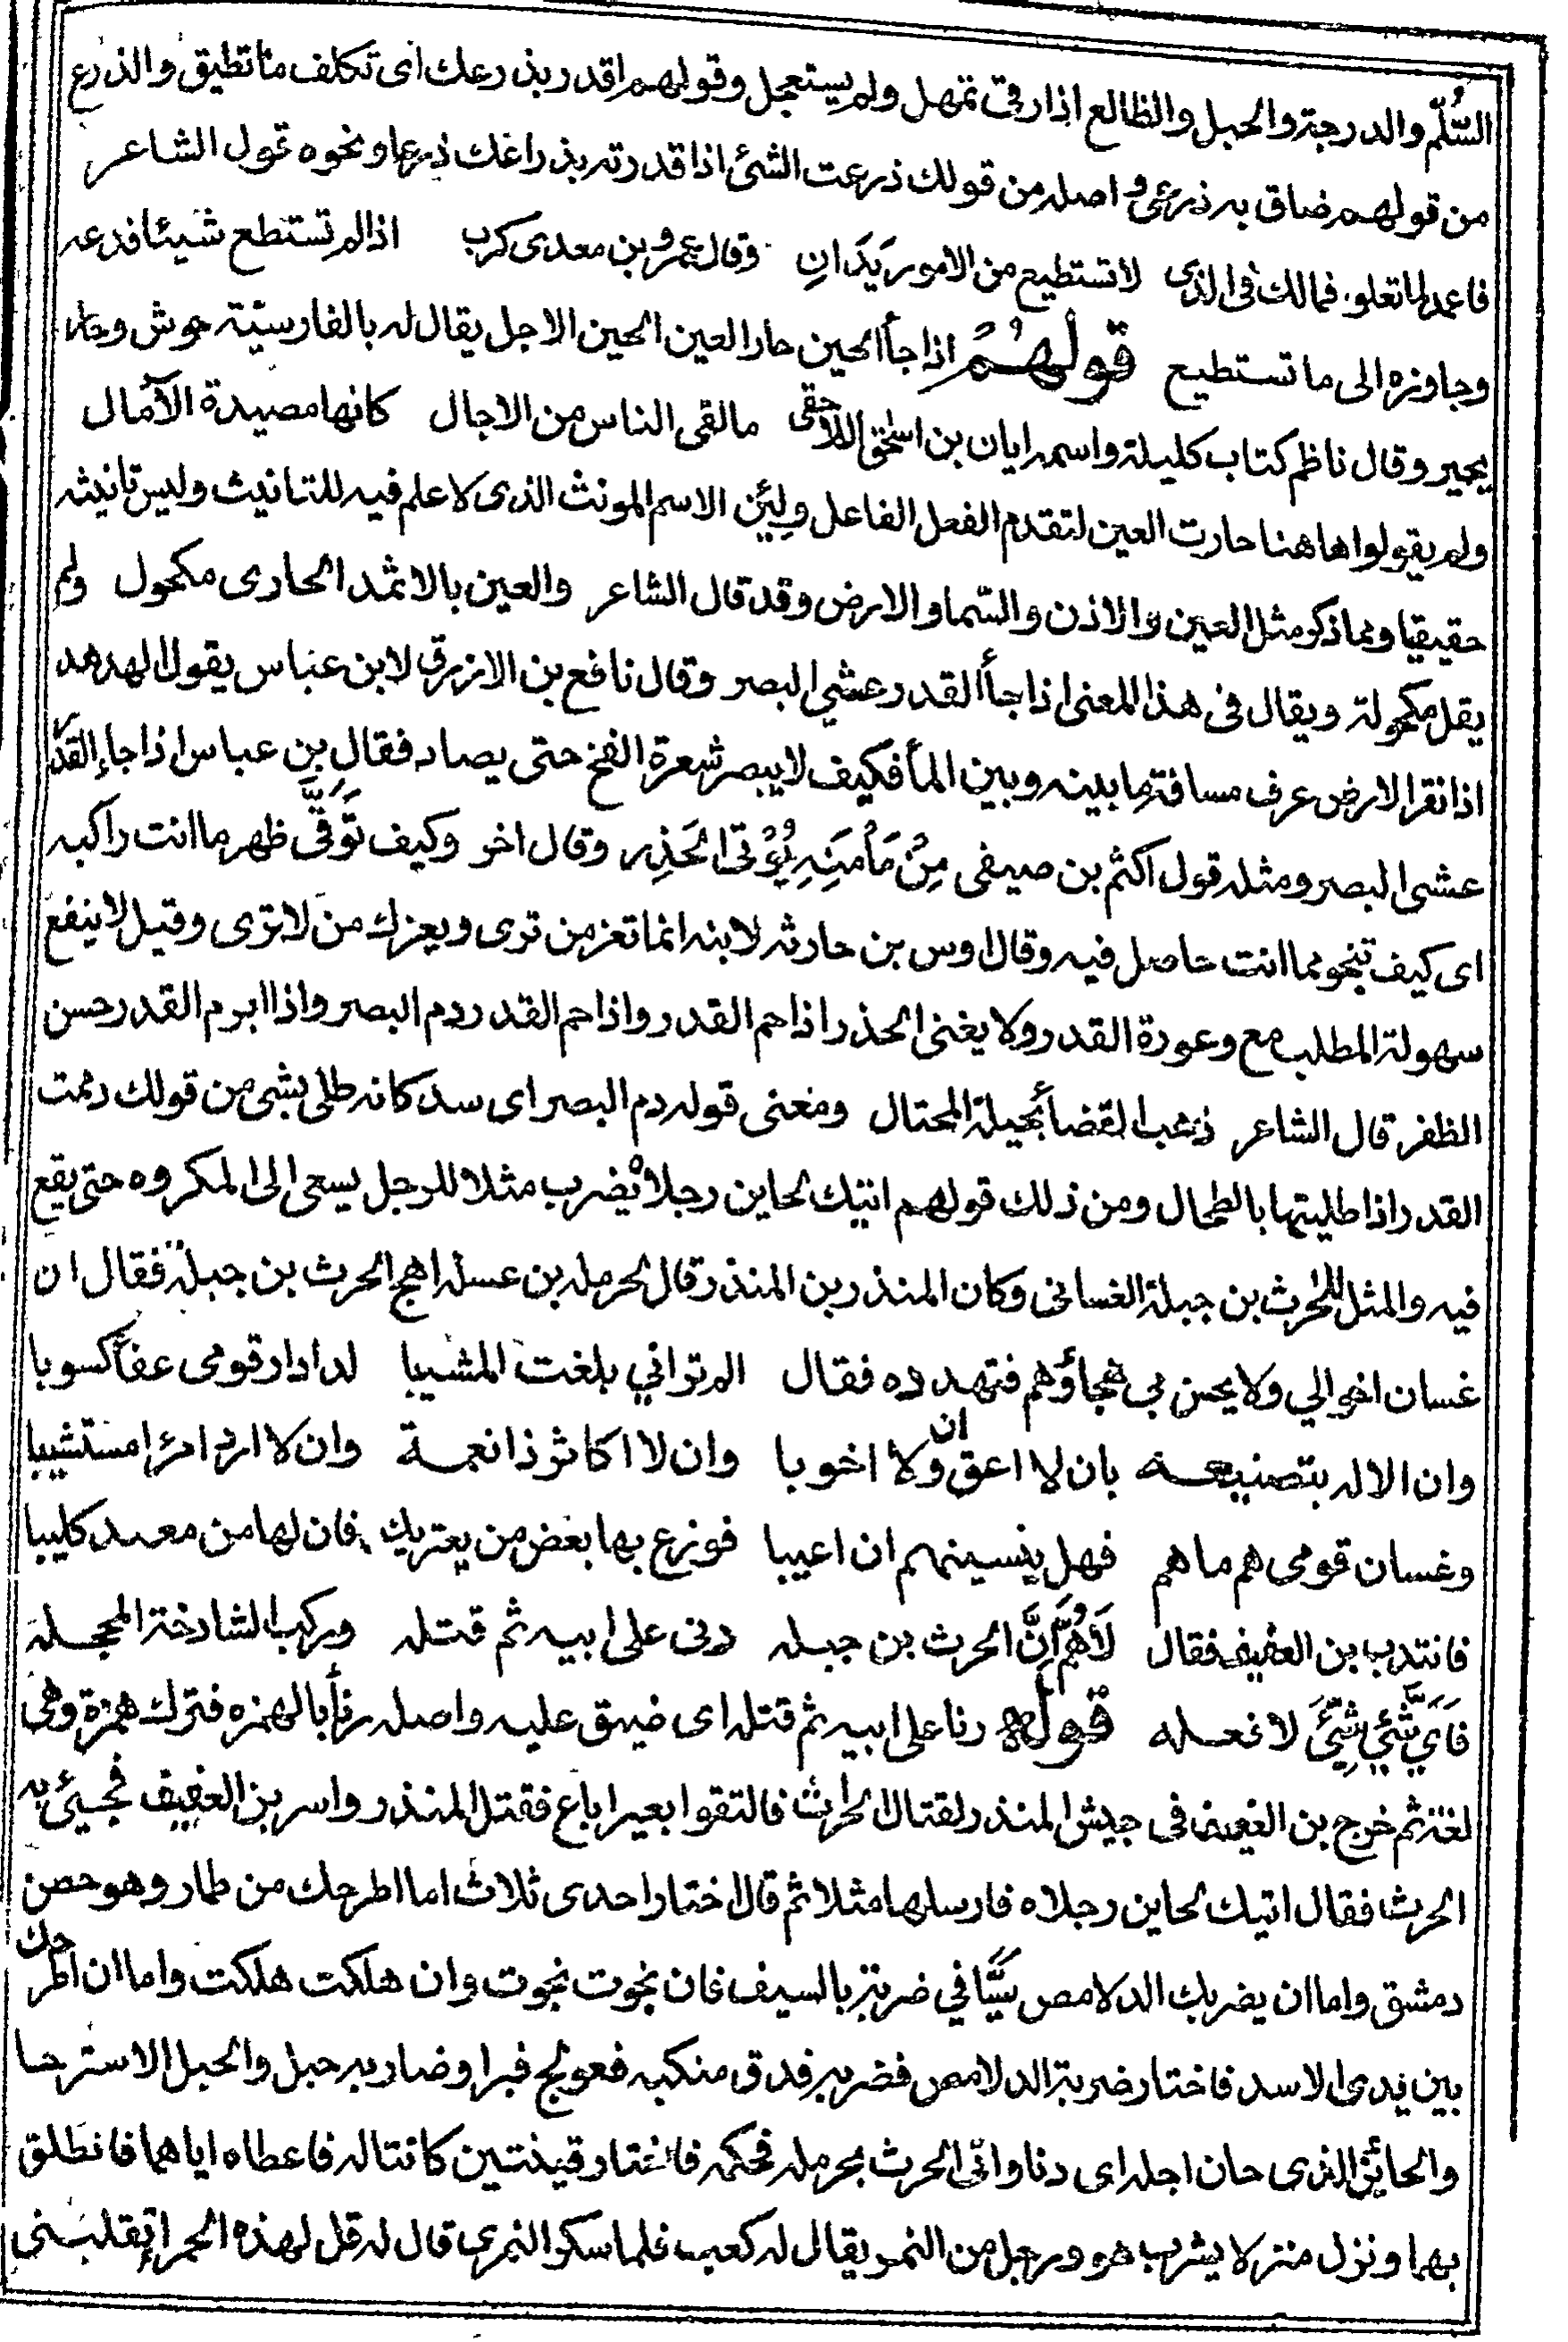 السُّلّم والدرجة والحبل والظالع اذا رقى تمهل ولم يستعجل وقولهم اقدر بذرعك اى تكلف ما تطيق والذرع
من قولهم ضاق به ذرعى و اصله من قولك ذرعت الشئ اذا قدرته بذراعك ذرعا ونحوه قول الشاعر
فاعمد لما تعلو فمالك فى الذى لا تستطيع من الامور يَدَانِ وقال عمرو بن معدى كرب اذا لم تستطع شيئا فدعه
وجاوزه الى ما تستطيع قولهُمْ اذا جأ الحين حار العين الحين الاجل يقال له بالفارسيّة حوش وحار
يحير وقال ناظم كتاب كليلة واسمه ابان بن اسحق اللاحقى ما لقى الناس من الاجال كانها مصيدة الآمال
ولم يقولوا هاهنا حارت العين لتقدم الفعل الفاعل ولِئَن الاسم المونث الذى لا علم فيه للتانيث وليس تانيثه
حقيقيا ربما ذكر مثل العين والاذن والسّما والارض وقد قال الشاعر والعين بالاثمد الحارى مكحول ولم
يقل مكحولة ويقال فى هذا المعنى اذا جأ القدر عشي البصر وقال نافع بن الازرق لابن عباس يقول الهدهد
اذا نقر الارض عرف مسافة ما بينه وبين المأ فكيف لا يبصر شعرة الفخ حتى يصاد فقال بن عباس اذا جاء القدَر
عشى البصر ومثله قول اكثم بن صيفى مِنْ مَأْمَنِهِ يُؤْتَى الحَذِر وقال اخر وكيف تَوَقَّى ظهر ما انت راكبه
اى كيف تنجو مما انت حاصل فيه وقال اوس بن حارثه لابنه انما تعز من ترى ويعزك من لا ترى وقيل لا ينفع
سهولة المطلب مع وعورة القدر ولا يغنى الحذر اذا حم القدر واذا حم القدر ردم البصر واذا ابرم القدر حسن
الظفر قال الشاعر ذهب القضأ بحيلة المحتال ومعنى قوله دم البصر اى سد كانه طلى بشى من قولك دممت
القدر اذا طليتها بالطحال ومن ذلك قولهم اتيك لحاين رجلاهْ يضرب مثلا للرجل يسعى الى المكروه حتى يقع
فيه والمثل للحرث بن جبلة الغسانى وكان المنذر بن المنذر قال لحرمله بن عسله اهج الحرث بن جبلة فقال ان
غسان اخوالي ولا يحسن بي هجاؤهم فتهدده فقال الم تر اني بلغت المشيبا لدا دار قومى عفأ كسوبا
وان الاله بتصنيعه بان لا اعق و ان لا اخوبا وان لا اكاثر ذا نعمة وان لا ارد امرا مستثيبا
وغسان قومى هم ما هم فهل ينسينهم ان اعيبا فوزع بها بعض من يعتريك فان لها من معد كليبا
فانتدب بن العفيف فقال لَاهُمَّ إنَّ الحرث بن جبله دنى على ابيه ثم قتله وركب الشادخة المحجله
فَاَيَّ شَئْيٍ شِئَ لا فعله قوله رنا على ابيه ثم قتله اى ضيق عليه واصله رنأ بالهمزه فترك همزة وهى
لغة ثم خرج بن العفيف فى جيش المنذر لقتال الحراث فالتقوا بعير اباغ فقتل المنذر واسر بن العفيف فجيئ به
الحرث فقال اتيك لحاين رجلاه فارسلها مثلا ثم قال اختار احدى ثلاث اما اطرحك من طمار وهو حصن
دمشق واما ان يضربك الدلامص سيَّافي ضربة بالسيف فان نجوت نجوت وان هلكت هلكت واما ان اطرحك
بين يدى الاسد فاختار ضربة الدلامص فضربه فدق منكبه فعولج فبرا وصار به حبل والحبل الاسترخا
والحائن الذى حان اجله اى دنا واتى الحرث بحرمله فحكمه فاختار قينتين كانتا له فاعطاه اياهما فانطلق
بهما ونزل منزلا يشرب هو ورجل من النمر يقال له كعب فلما سكر النمرى قال له قل لهذه الحمراء تقلبنى